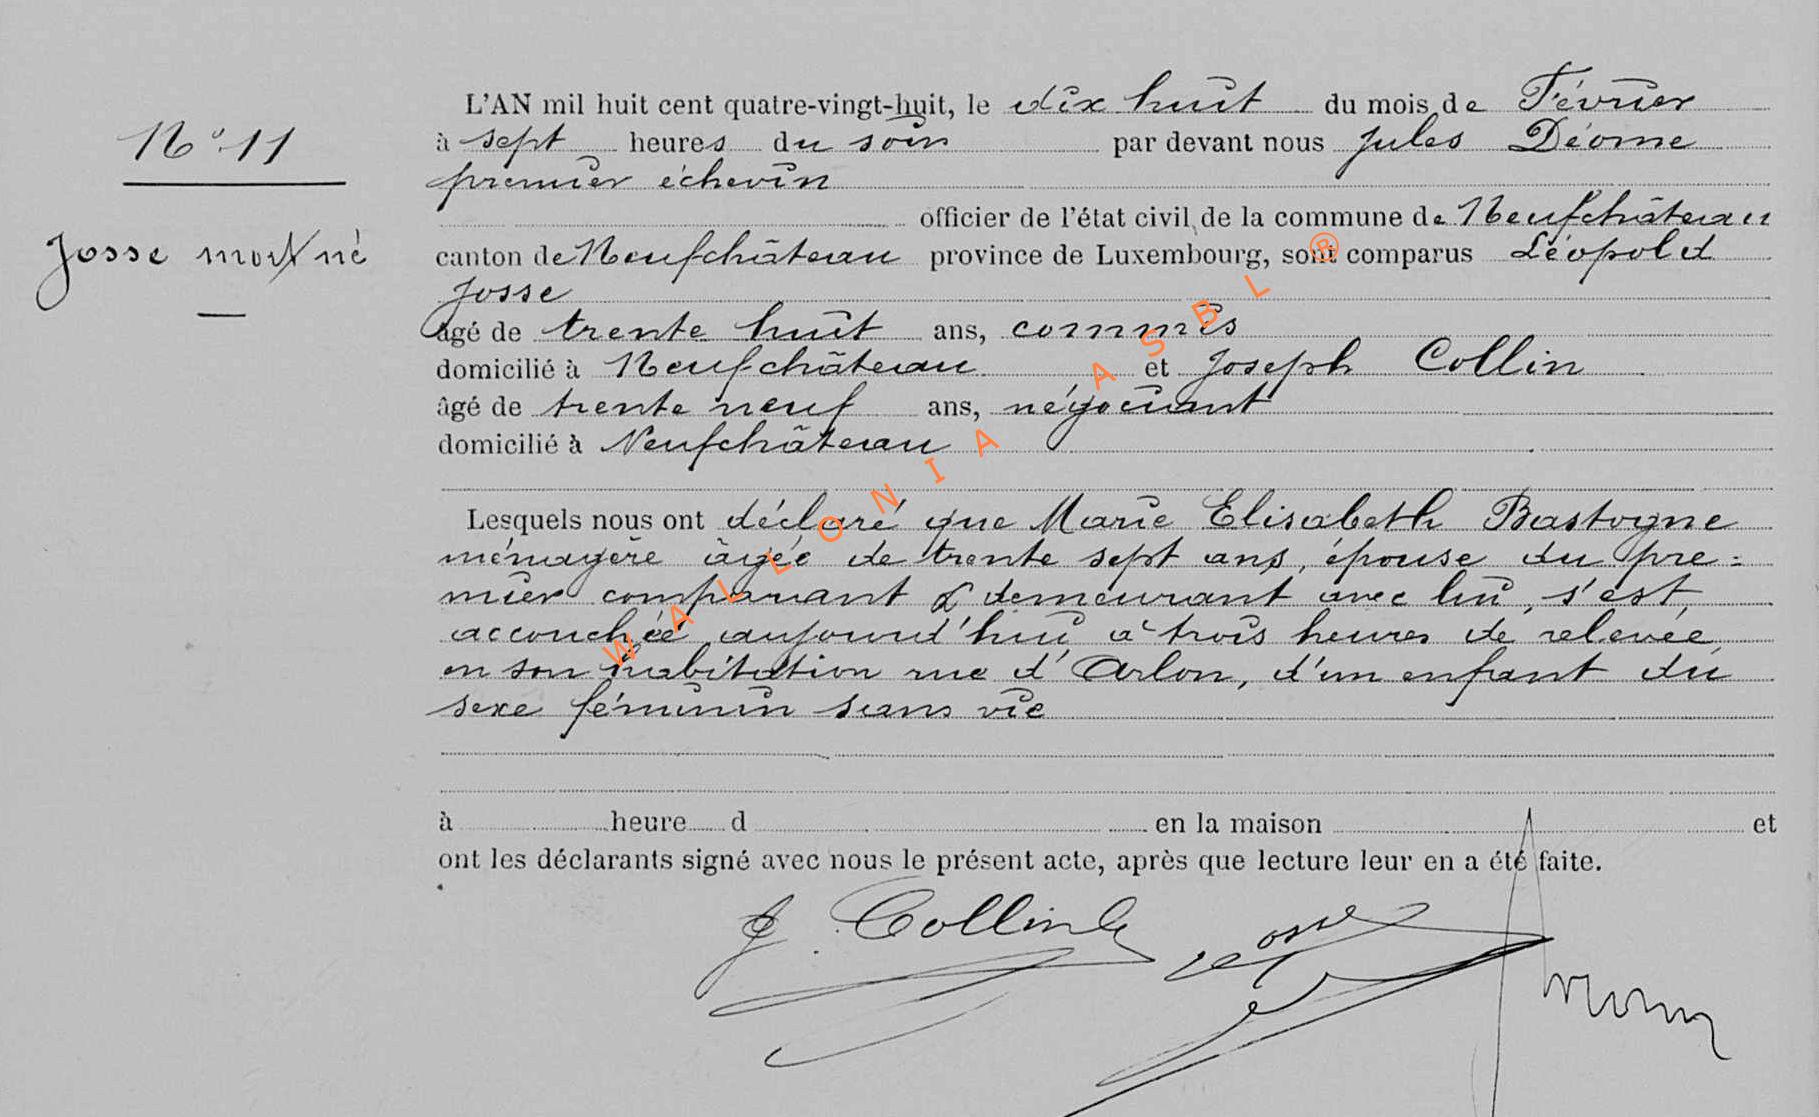 N° 11
Josse mort né
L'AN mil huit cent quatre-vingt-huit, le dix huit du mois de Février
à sept heures du soir par devant nous Jules Déome
premier échevin
officier de l'état civil de la commune de Neufchâteau
canton de Neufchâteau province de Luxembourg, sont comparus Léopold
Josse
âgé de trente huit ans, commis
domicilié à Neufchâteau et Joseph Collin
âgé de trente neuf ans, négociant
domicilié à Neufchâteau
Lesquels nous ont déclaré que Marie Elisabeth Bastogne
ménagère âgée de trente sept ans, épouse du pre=
mier comparant & demeurant avec lui, s'est
accouchée aujourd'hui à trois heures de relevée
en son habitation rue d'Arlon, d'un enfant du
sexe féminin sans vie
à heure d en la maison et
ont les déclarants signé avec nous le présent acte, après que lecture leur en a été faite.
J. Collin Josse
WALLONIA ASBL ®